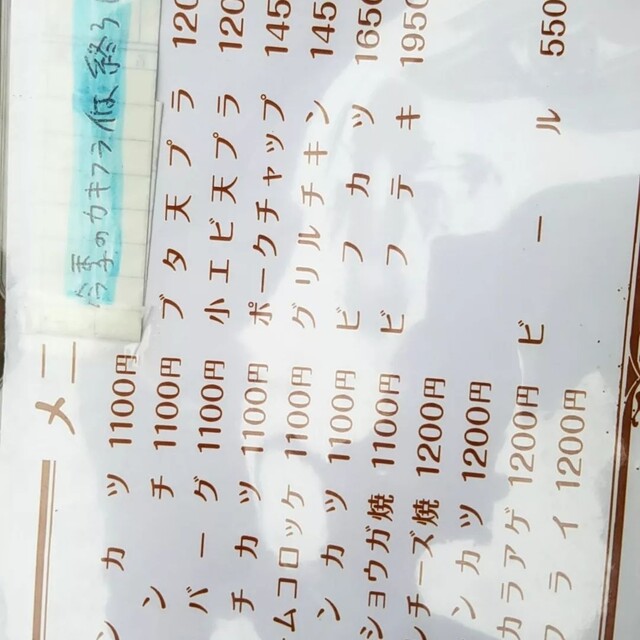 今季のカキフライは終
メニ
ンカツ 1100円
ンチ 1100円
バーグ 1100円
チカツ 1100円
ムコロッケ 1100円
ンカツ 1100円
ショウガ焼 1100円
チーズ焼 1200円
ンカツ 1200円
カラアゲ 1200円
フライ 1200円
ブタ天プラ 120
小エビ天プラ 120
ポークチャップ 145
グリルチキン 145
ビフカツ 1650
ビフテキ 1950
ビール 550